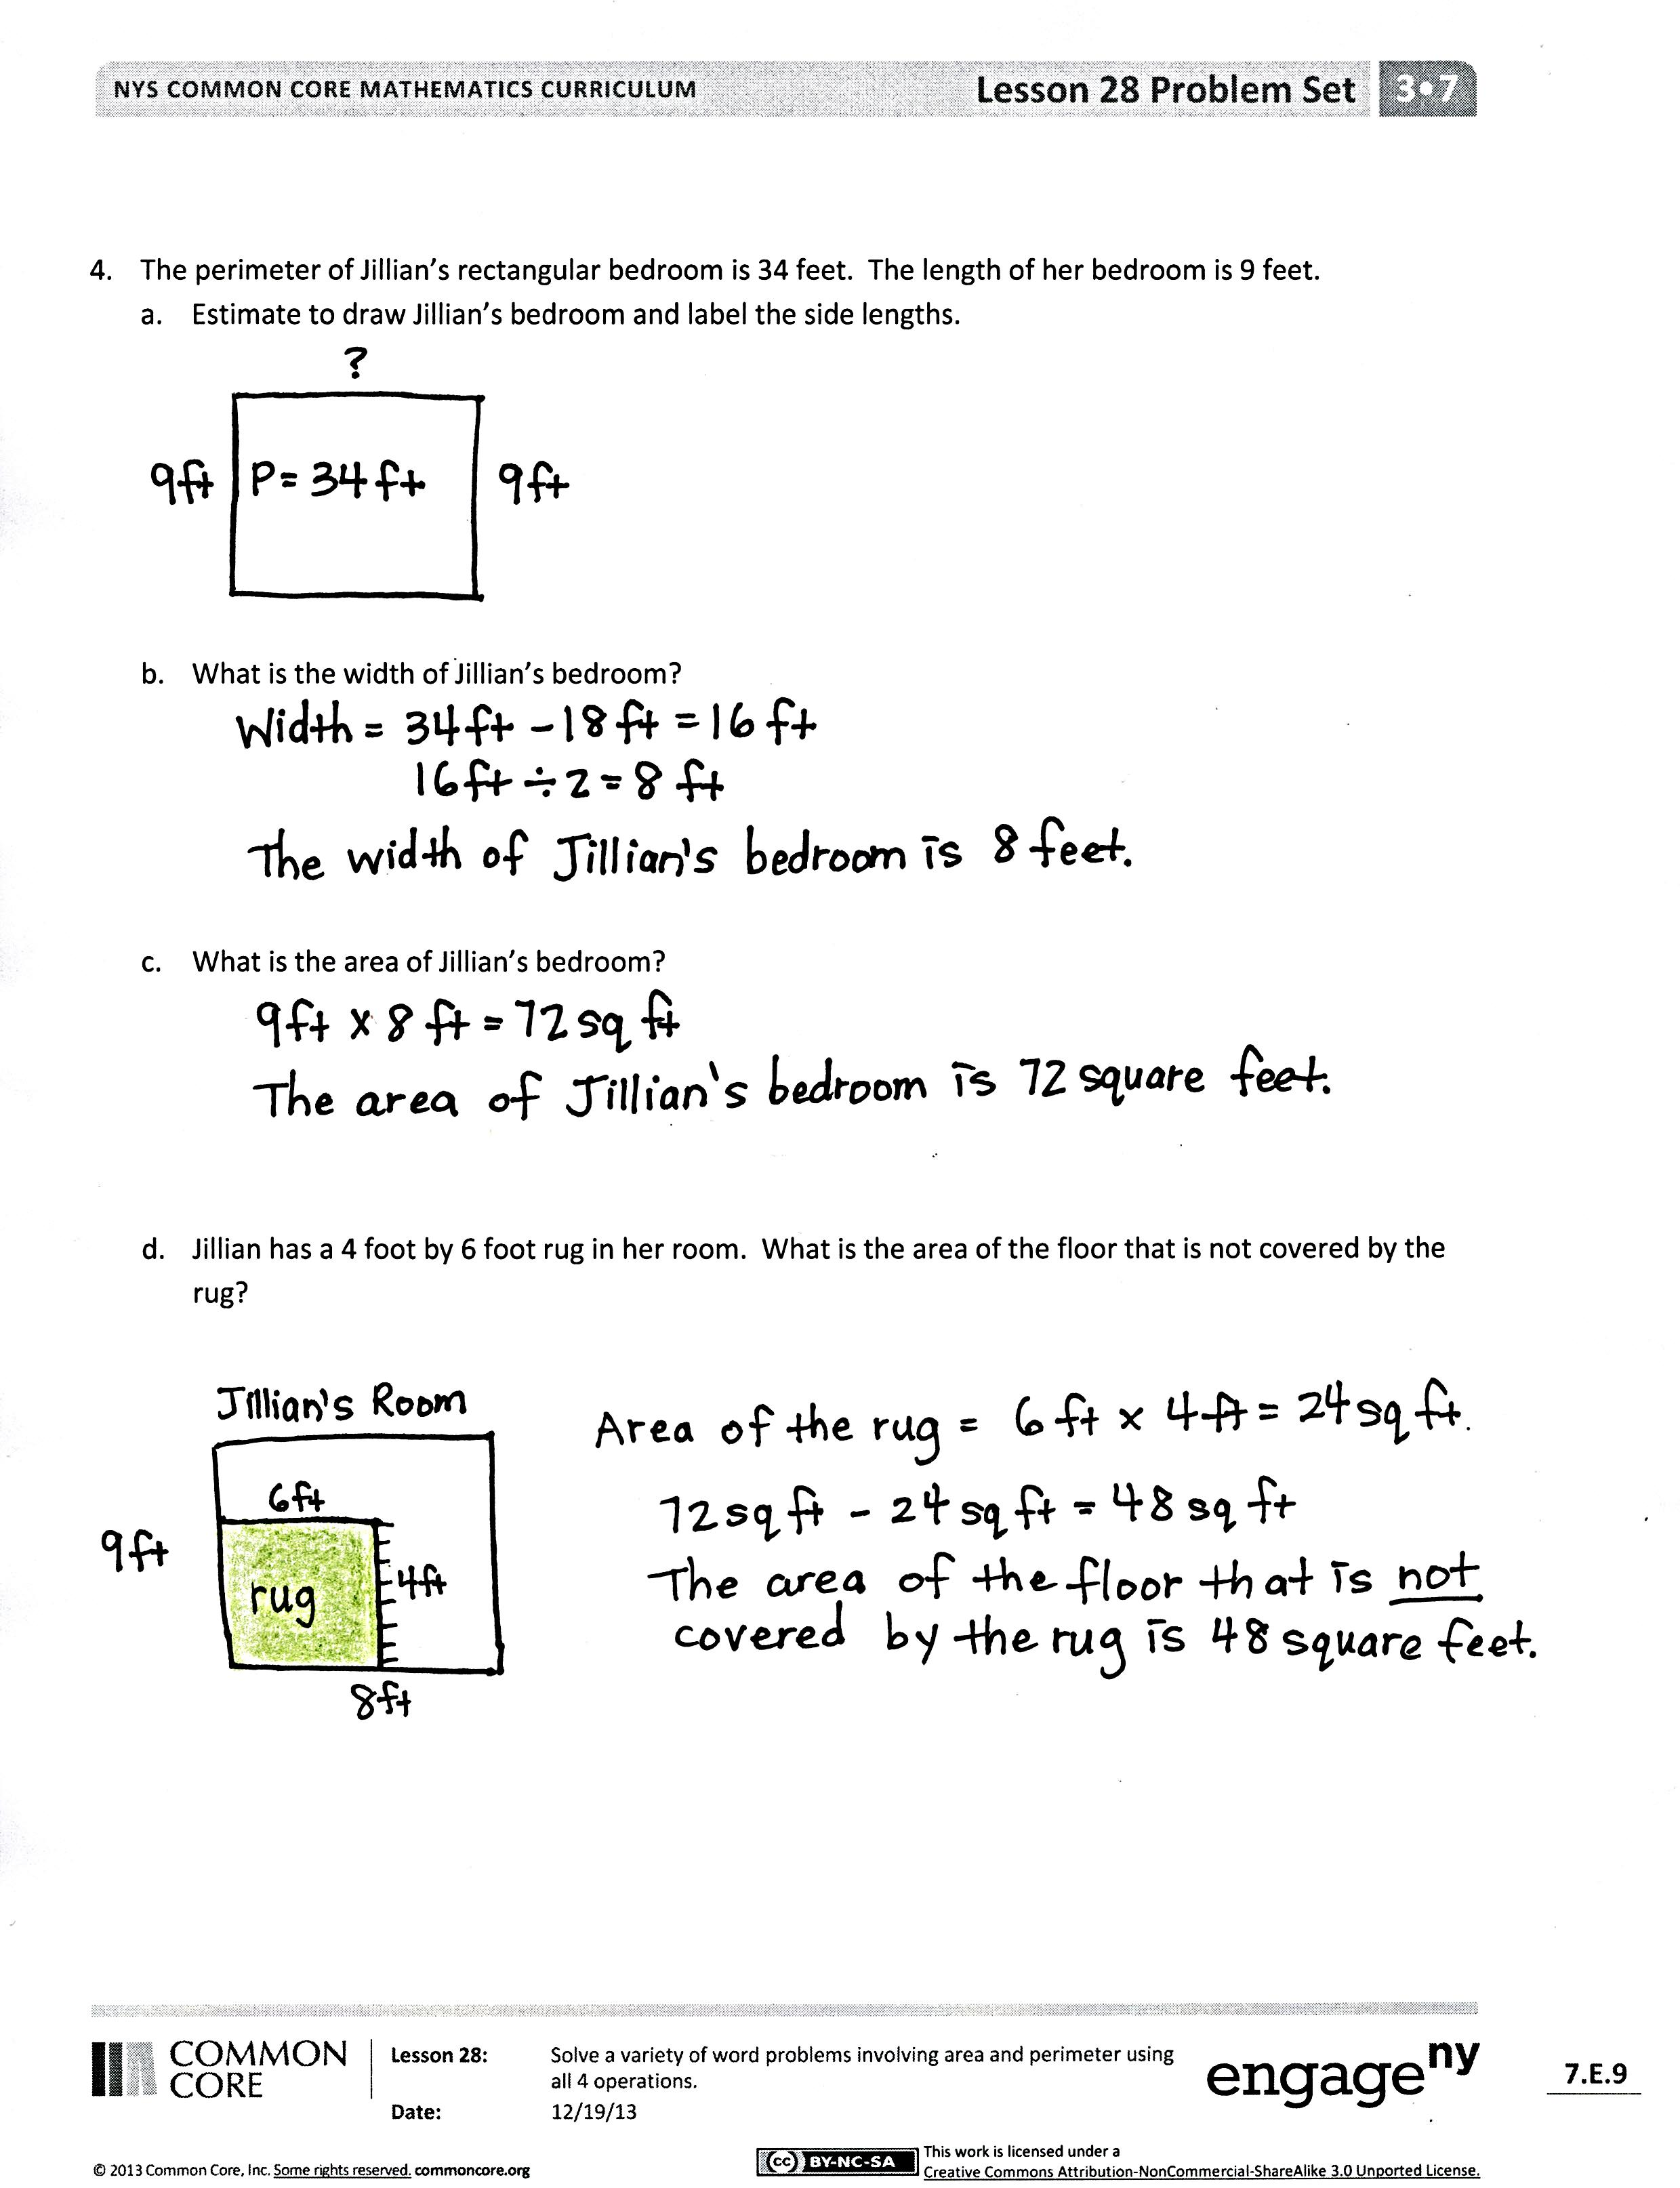 NYS COMMON CORE MATHEMATICS CURRICULUM Lesson 28 Problem Set 3•7
4. The perimeter of Jillian's rectangular bedroom is 34 feet. The length of her bedroom is 9 feet.
a. Estimate to draw Jillian's bedroom and label the side lengths.
?
9ft P = 34 ft 9ft
b. What is the width of Jillian's bedroom?
Width = 34ft - 18 ft = 16 ft
16ft ÷ 2 = 8 ft
The width of Jillian's bedroom is 8 feet.
c. What is the area of Jillian's bedroom?
9ft x 8 ft = 72 sq ft
The area of Jillian's bedroom is 72 square feet.
d. Jillian has a 4 foot by 6 foot rug in her room. What is the area of the floor that is not covered by the
rug?
Jillian's Room
6ft
9ft
rug
4ft
8ft
Area of the rug = 6 ft x 4 ft = 24 sq ft.
72 sq ft - 24 sq ft = 48 sq ft
The area of the floor that is not
covered by the rug is 48 square feet.
COMMON
CORE
Lesson 28: Solve a variety of word problems involving area and perimeter using
all 4 operations.
Date: 12/19/13
engage ny
7.E.9
© 2013 Common Core, Inc. Some rights reserved. commoncore.org
cc BY-NC-SA
This work is licensed under a
Creative Commons Attribution-NonCommercial-ShareAlike 3.0 Unported License.